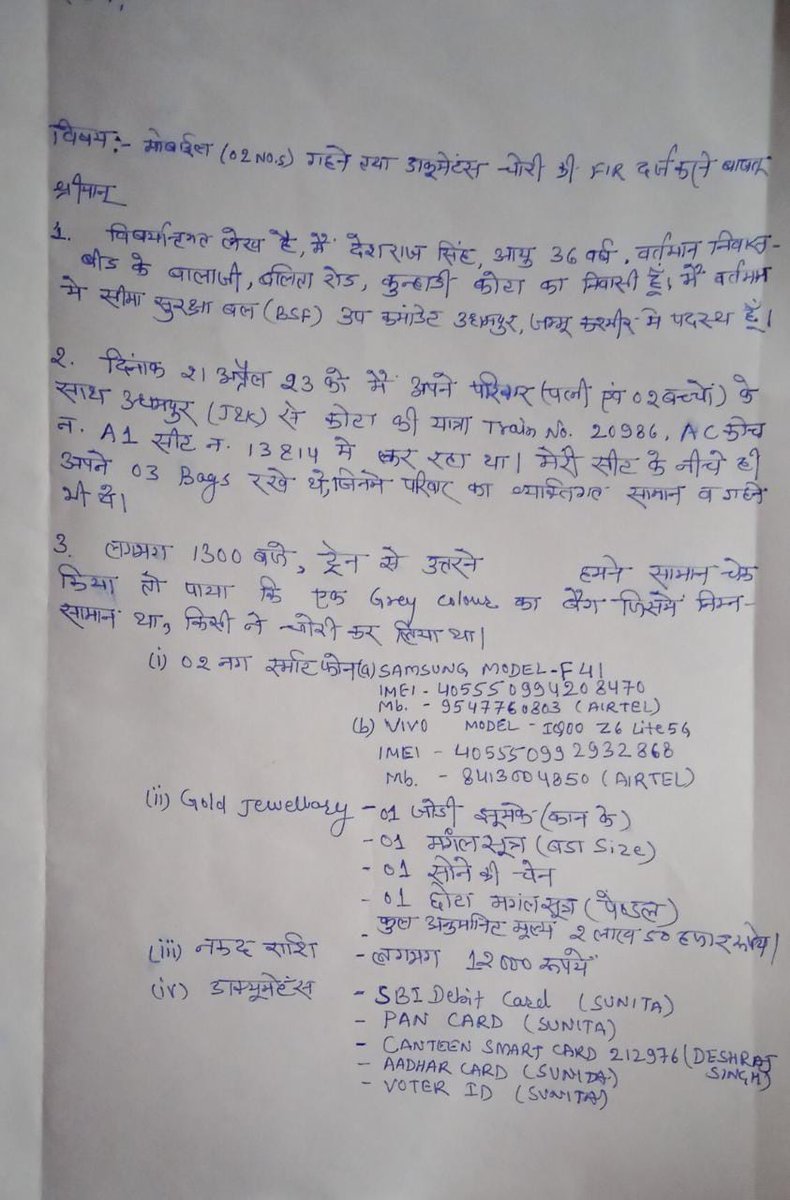 विषय:- मोबाईल (02 NO.S) गहने तथा डाकूमेंटस चोरी की FIR दर्ज करने बाबत
श्रीमान्
1. विषयान्तगत लेख है, मैं देशराज सिंह, आयु 36 वर्ष, वर्तमान निवास-
बीड के बालाजी, बलिता रोड, कुन्हाडी कोटा का निवासी हूँ। मैं वर्तमान
मे सीमा सुरक्षा बल (BSF) उप कमांडेट उधमपुर, जम्मू कश्मीर मे पदस्थ हूँ।
2. दिनांक 21 अप्रैल 23 को मैं अपने परिवार (पत्नी एवं 02 बच्चों) के
साथ उधमपुर (J&K) से कोटा की यात्रा Train No. 20986, AC कोच
न. A1 सीट न. 13 &14 मे कर रहा था। मेरी सीट के नीचे ही
अपने 03 Bags रखे थे, जिनमे परिवार का व्यक्तिगत सामान व गहने
भी थे।
3. लगभग 1300 बजे, ट्रेन से उतरने हमने सामान चेक
किया तो पाया कि एक Grey colour का बैग जिसमें निम्न-
सामान था, किसी ने चोरी कर लिया था।
(i) 02 नग स्मार्ट फोन (a) SAMSUNG MODEL-F41
IMEI - 405550994208470
Mb. - 9547760803 (AIRTEL)
(b) VIVO MODEL - IQOO Z6 Lite 5G
IMEI - 405550992932868
Mb. - 8413004850 (AIRTEL)
(ii) Gold Jewellary - 01 जोडी झूमके (कान के)
- 01 मगंल सूत्र (बडा Size)
- 01 सोने की चेन
- 01 छोटा मगंलसूत्र (पेण्डल)
- कुल अनुमानित मूल्य 2 लाख 50 हजार रूपये।
(iii) नकद राशि - लगभग 12000 रूपये
(iv) डाक्यूमेंटस - SBI Debit Card (SUNITA)
- PAN CARD (SUNITA)
- CANTEEN SMART CARD 212976 (DESHRAJ
SINGH)
- AADHAR CARD (SUNITA)
- VOTER ID (SUNITA)